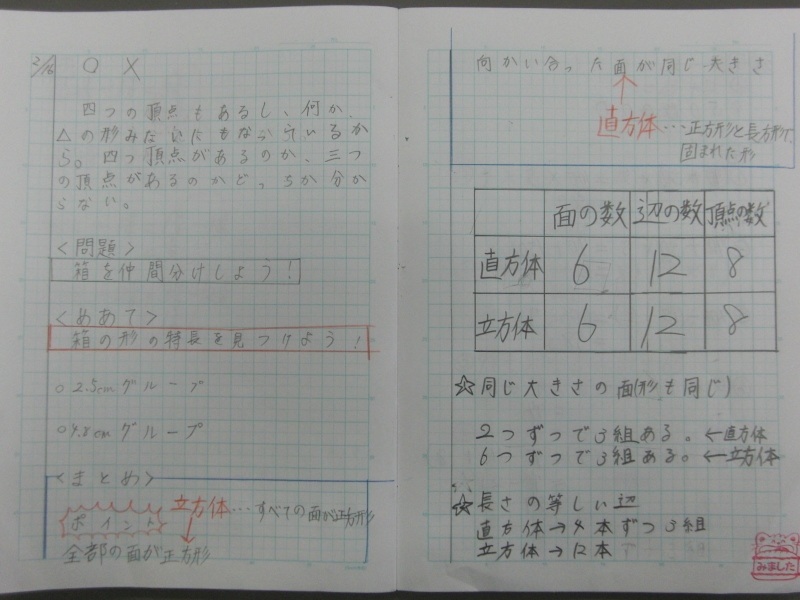 2/16 ○ ×
四つの頂点もあるし、何か、
△の形みたいにもなっているか
ら。四つ頂点があるのか、三つ
の頂点があるのかど、ちか分か
らない。
<問題>
箱を仲間分けしよう!
<めあて>
箱の形の特長を見つけよう!
○2.5cmグループ
○4.8cmグループ
<まとめ>
ポイント
立方体…すべての面が正方形
全部の面が正方形
向かい合った面が同じ大きさ
直方体…正方形と長方形で
囲まれた形
面の数 辺の数 頂点の数
直方体 6 12 8
立方体 6 12 8
☆同じ大きさの面(形も同じ)
2つずつで3組ある。←直方体
6つずつで3組ある。←立方体
☆長さの等しい辺
直方体→4本ずつ3組
立方体→12本
みました